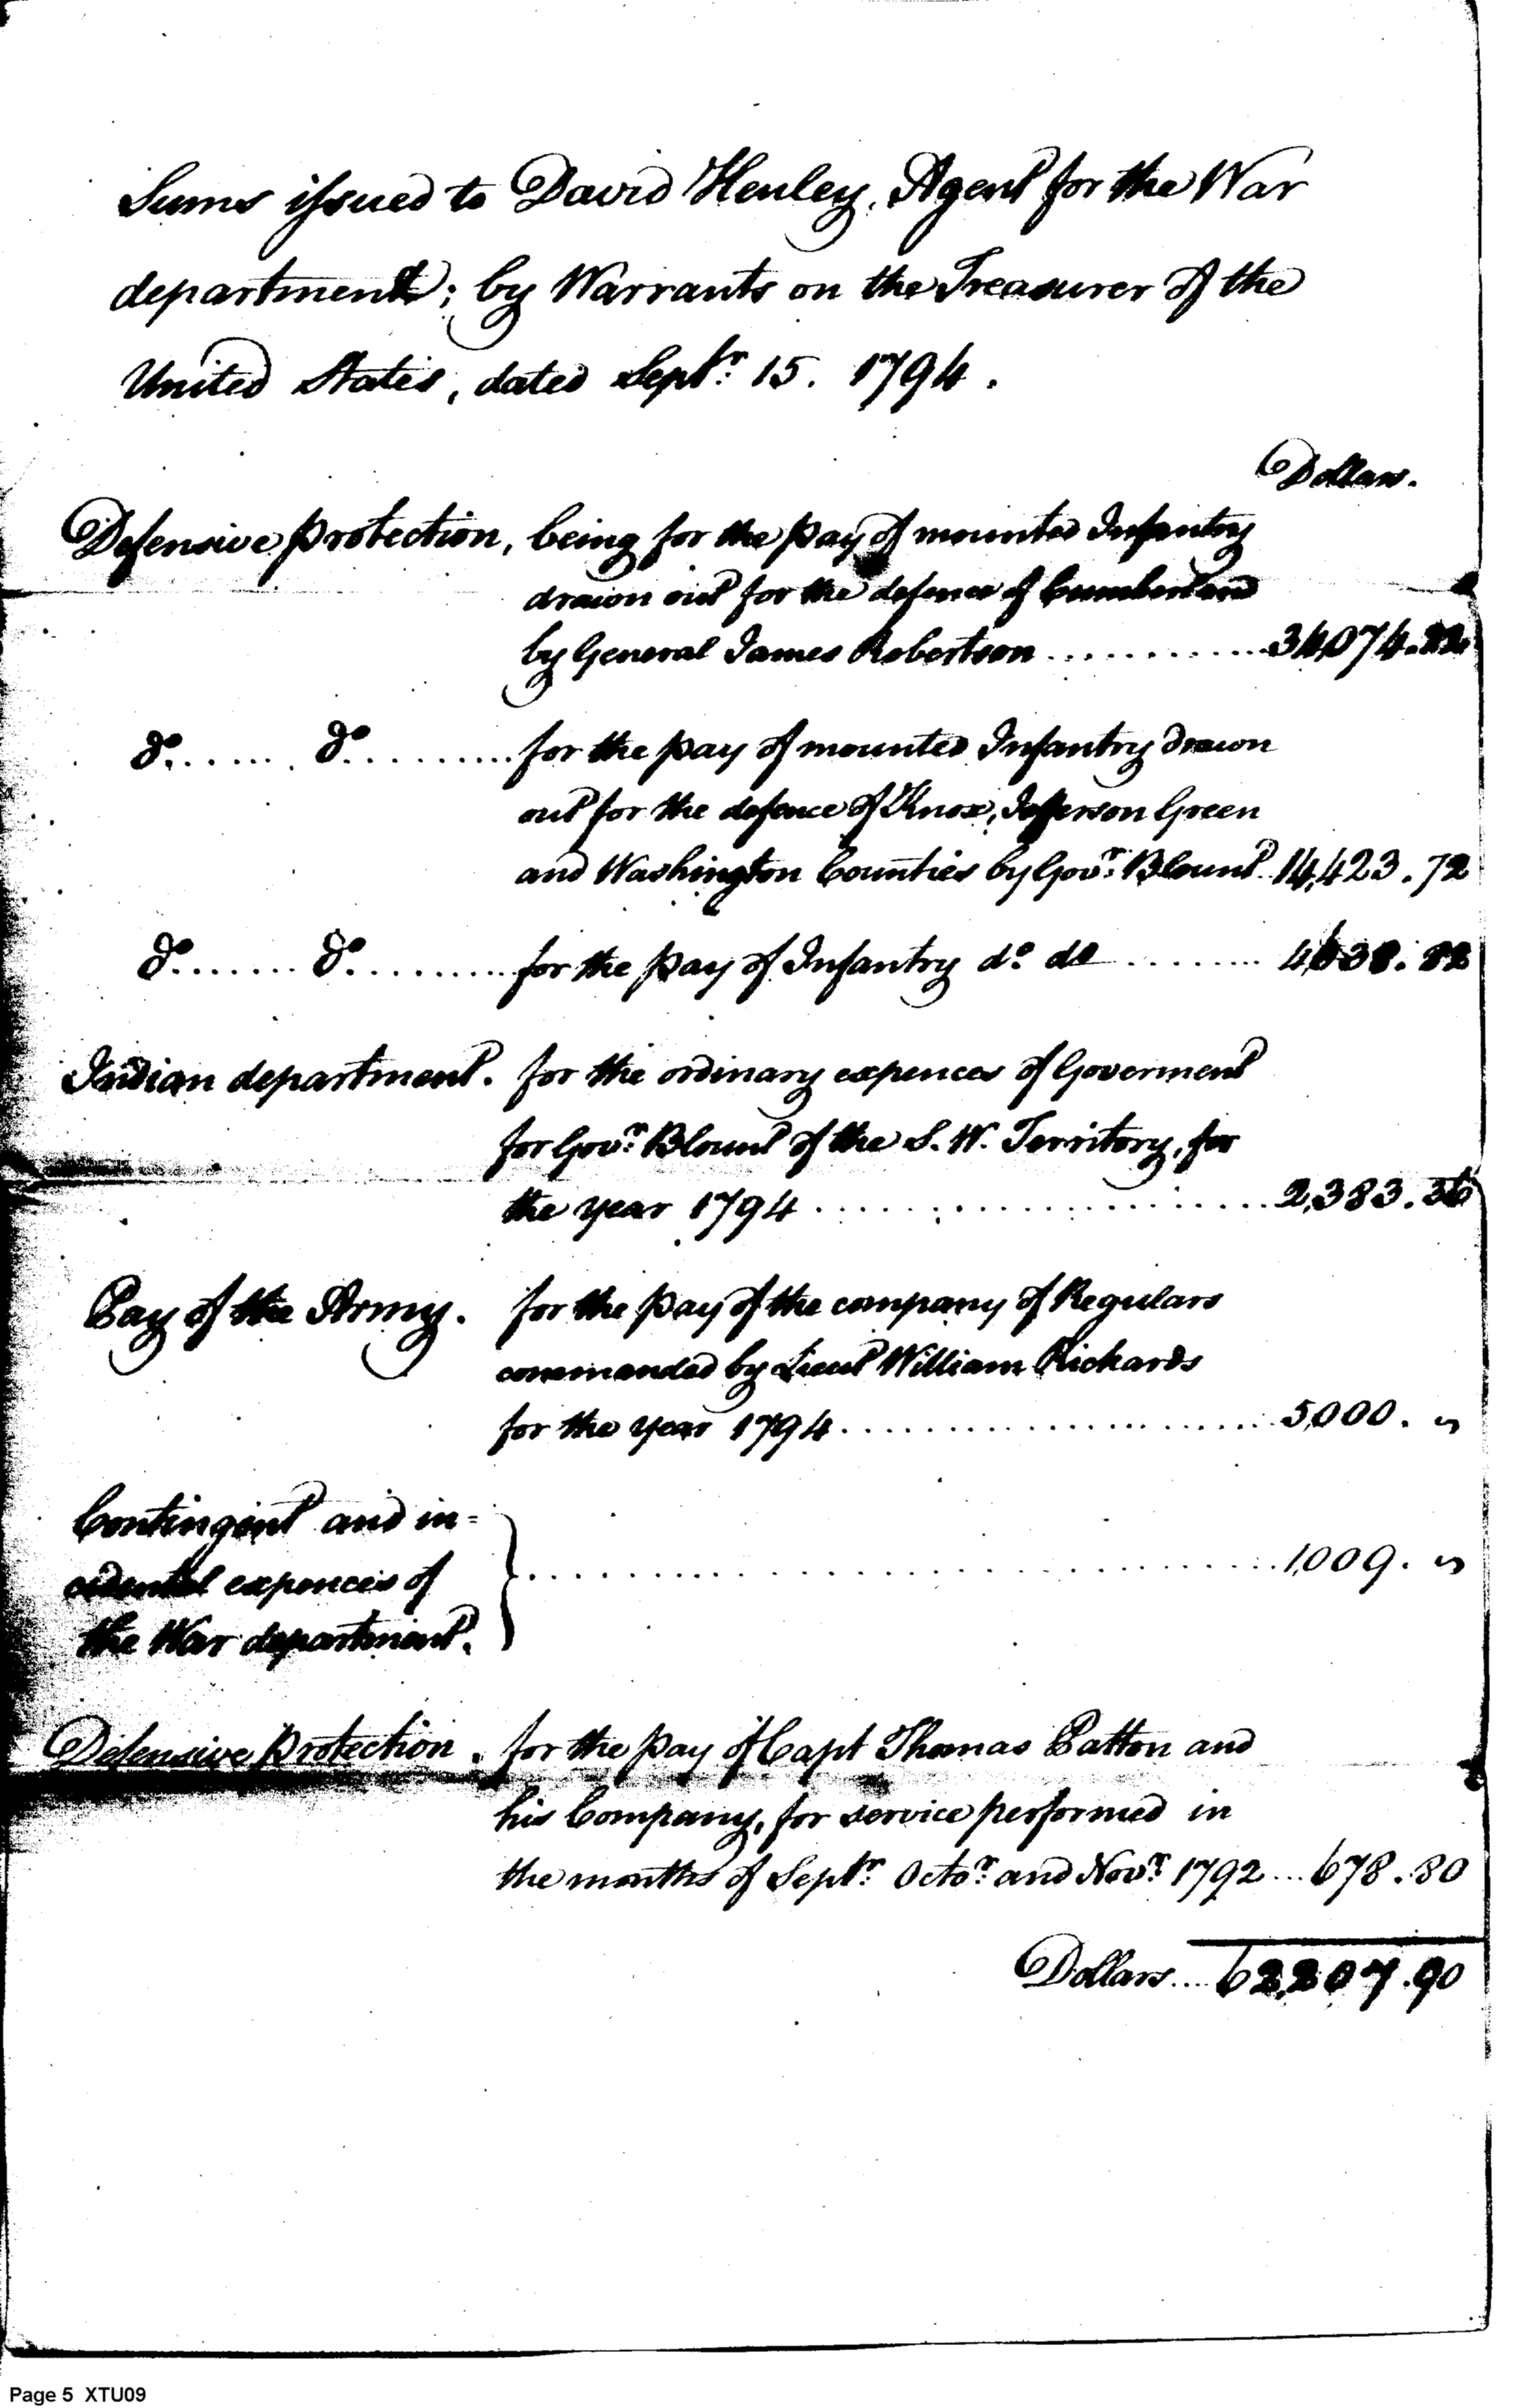 Sums issued to David Henley, Agent for the War
department; by Warrants on the Treasurer of the
United States, dated Septr. 15. 1794.
Dollars.
Defensive protection, being for the pay of mounted Infantry
drawn out for the defence of Cumberland
by General James Robertson ............
do....... do.......... for the pay of mounted Infantry drawn
out for the defence of Knox, Jefferson Green
and Washington Counties by Govr. Blount. 14,423.72
do....... do.......... for the pay of Infantry do. do ........ 4638.82
Indian department. for the ordinary expences of Goverment
for Govr. Blount of the S. W. Territory, for
the year 1794 ........................ 2,383.36
Pay of the Army. for the pay of the company of Regulars
commanded by Lieut William Richards
for the year 1794 ........................ 5,000. "
Contingent and in=
cidental expences of ........................ 1,009. "
the War department.
Defensive protection. for the pay of Capt Thomas Patton and
his Company, for service performed in
the months of Septr. Octor. and Novr. 1792 ... 678.80
Dollars.... 62,207.90
Page 5 XTU09